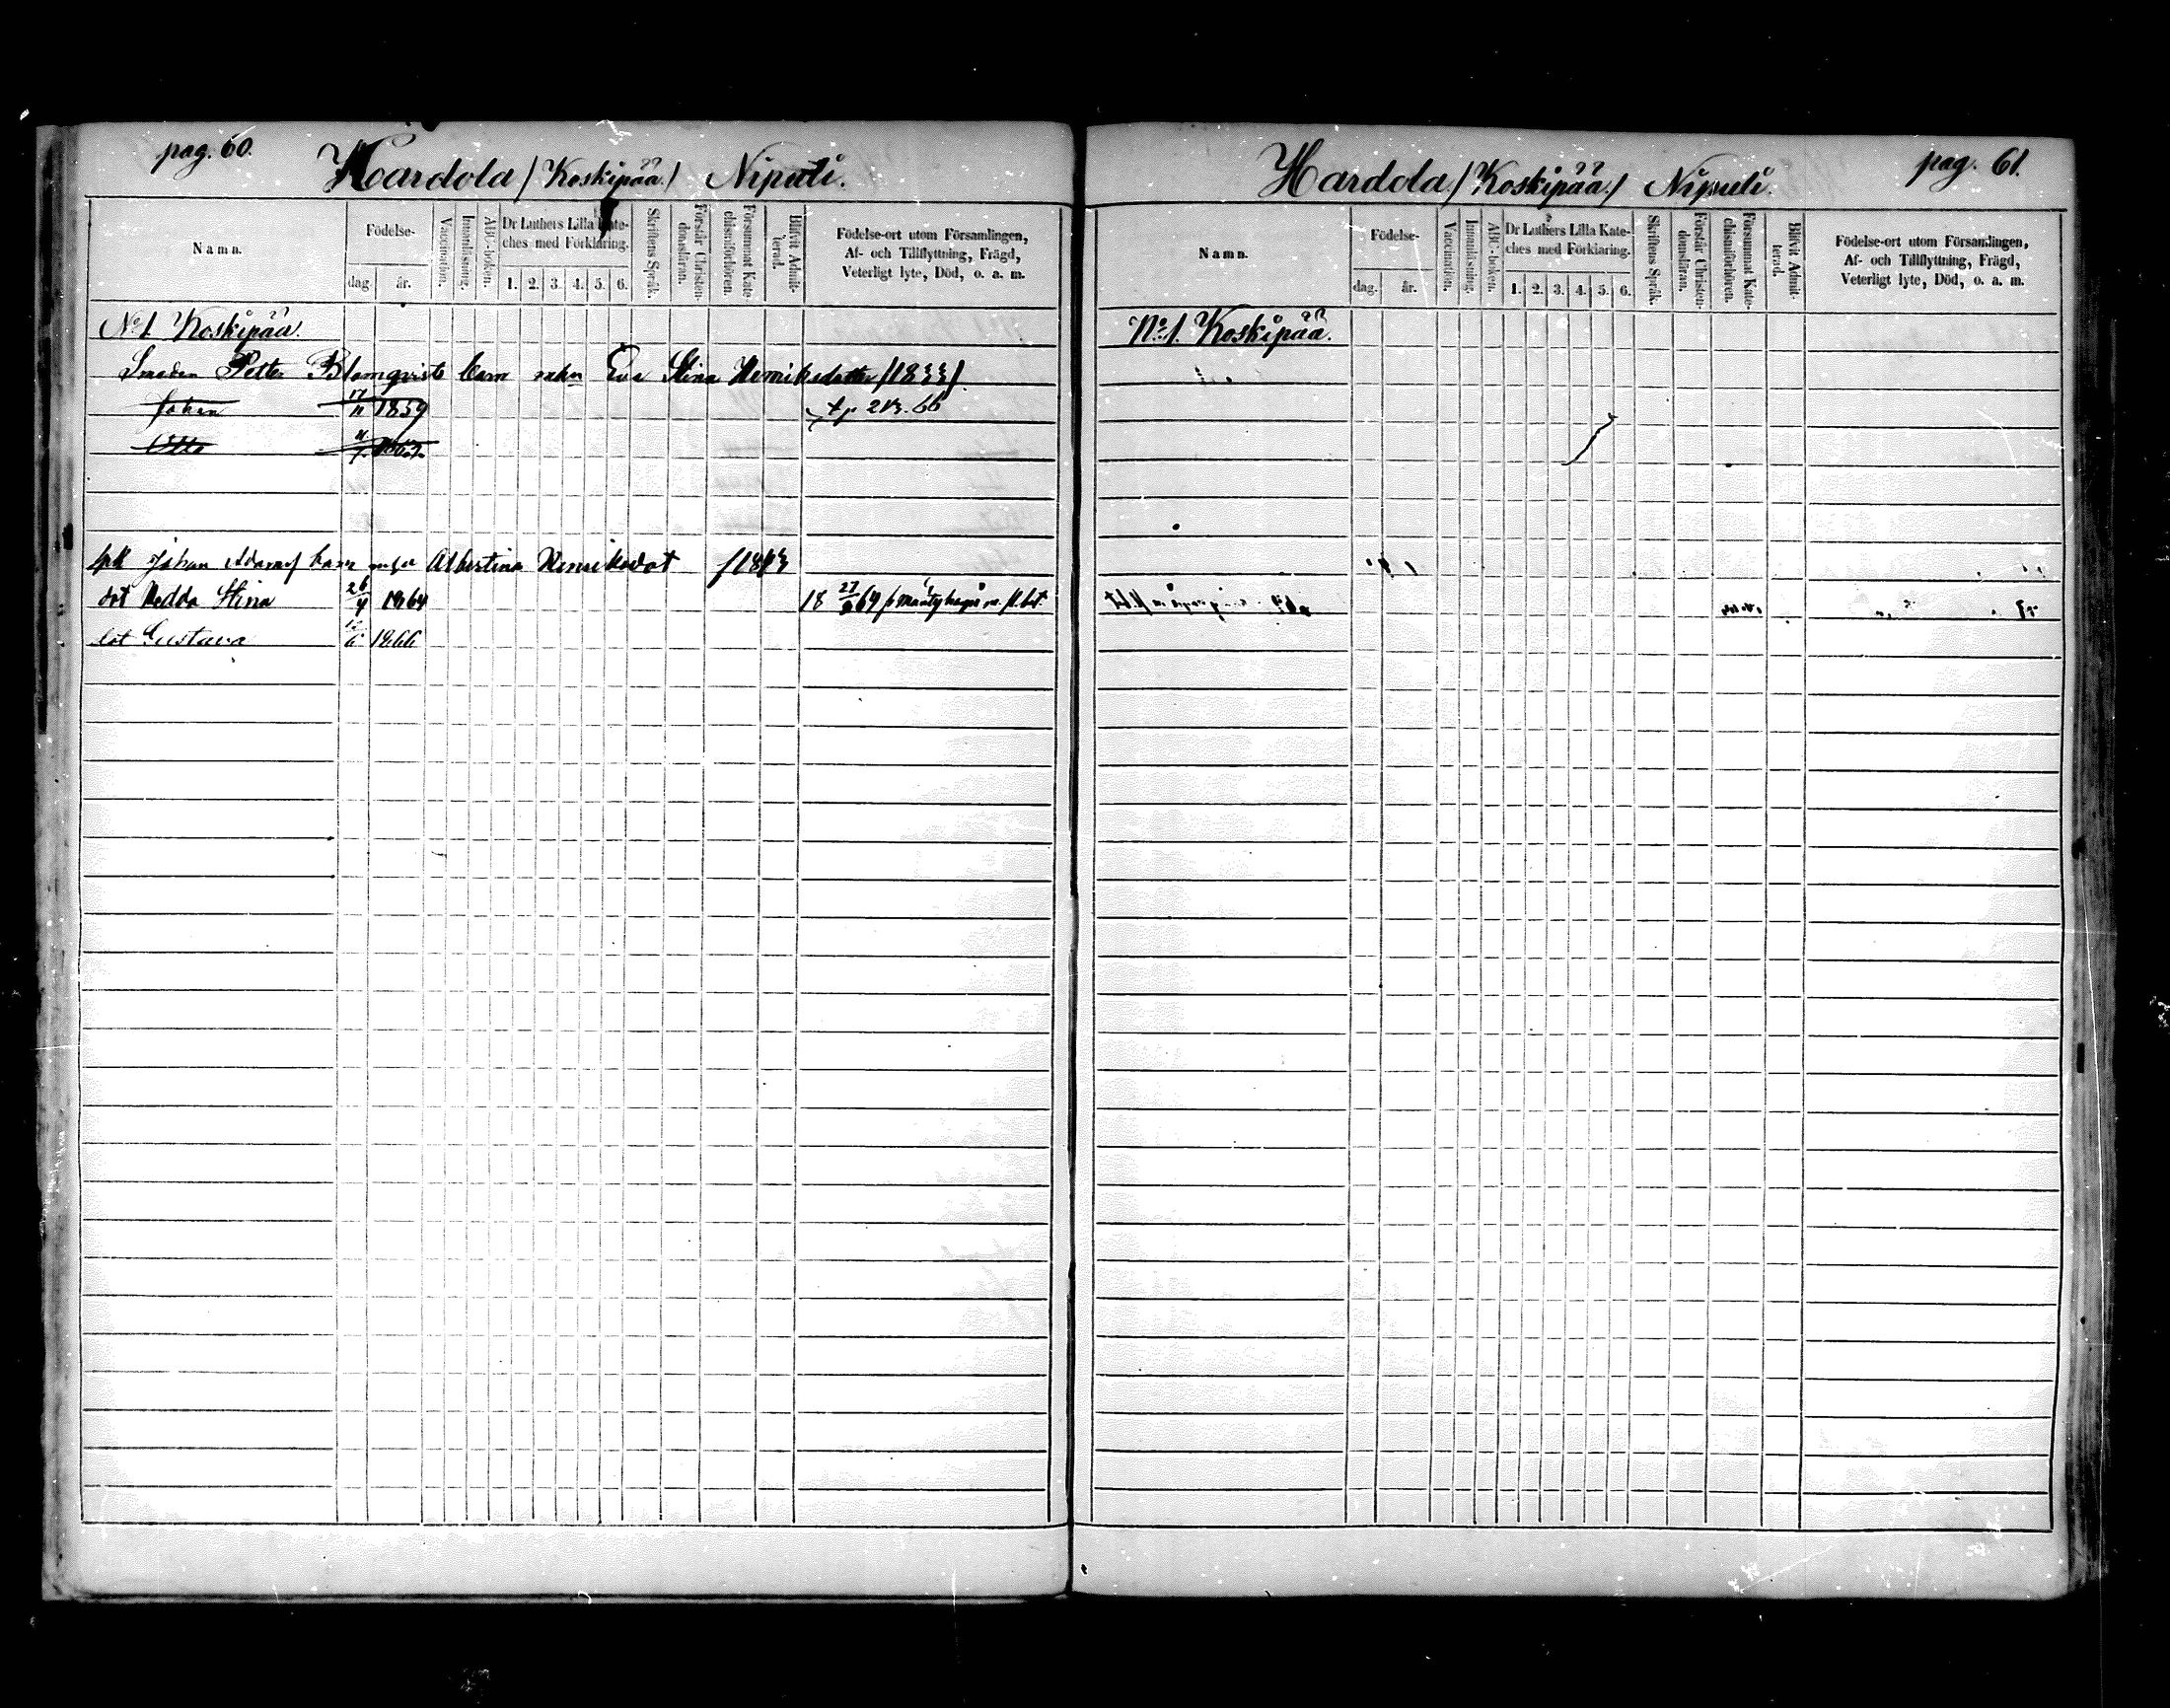 pag. 60.
Hardola / Koskipää / Niputi.
Namn.
Födelse-
dag.
år.
Vaccination.
Innanläsning.
ABC-boken.
Dr Luthers Lilla Kate-
ches med Förklaring.
1. 2. 3. 4. 5. 6.
Skriftens Språk.
Förstår Christen-
domsläran.
Försummat Kate-
chismiförhören.
Blifvit Admit-
terad.
Födelse-ort utom Församlingen,
Af- och Tillflyttning, Frägd,
Veterligt lyte, Död, o. a. m.
No 1. Koskipää.
Smeden Petter Blomqvists barn Eva Stina Henriksdotter /1833/.
Johan 17/11 1859 66
Otto
Johan barn Albertina Henriksdot /1843
dot Hedda Stina 26/4 1864 18 27/9 69
dot Gustava 12/6 1866
pag. 61.
Hardola / Koskipää / Niputi.
Namn.
Födelse-
dag.
år.
Vaccination.
Innanläsning.
ABC-boken.
Dr Luthers Lilla Kate-
ches med Förklaring.
1. 2. 3. 4. 5. 6.
Skriftens Språk.
Förstår Christen-
domsläran.
Försummat Kate-
chismiförhören.
Blifvit Admit-
terad.
Födelse-ort utom Församlingen,
Af- och Tillflyttning, Frägd,
Veterligt lyte, Död, o. a. m.
No 1. Koskipää.